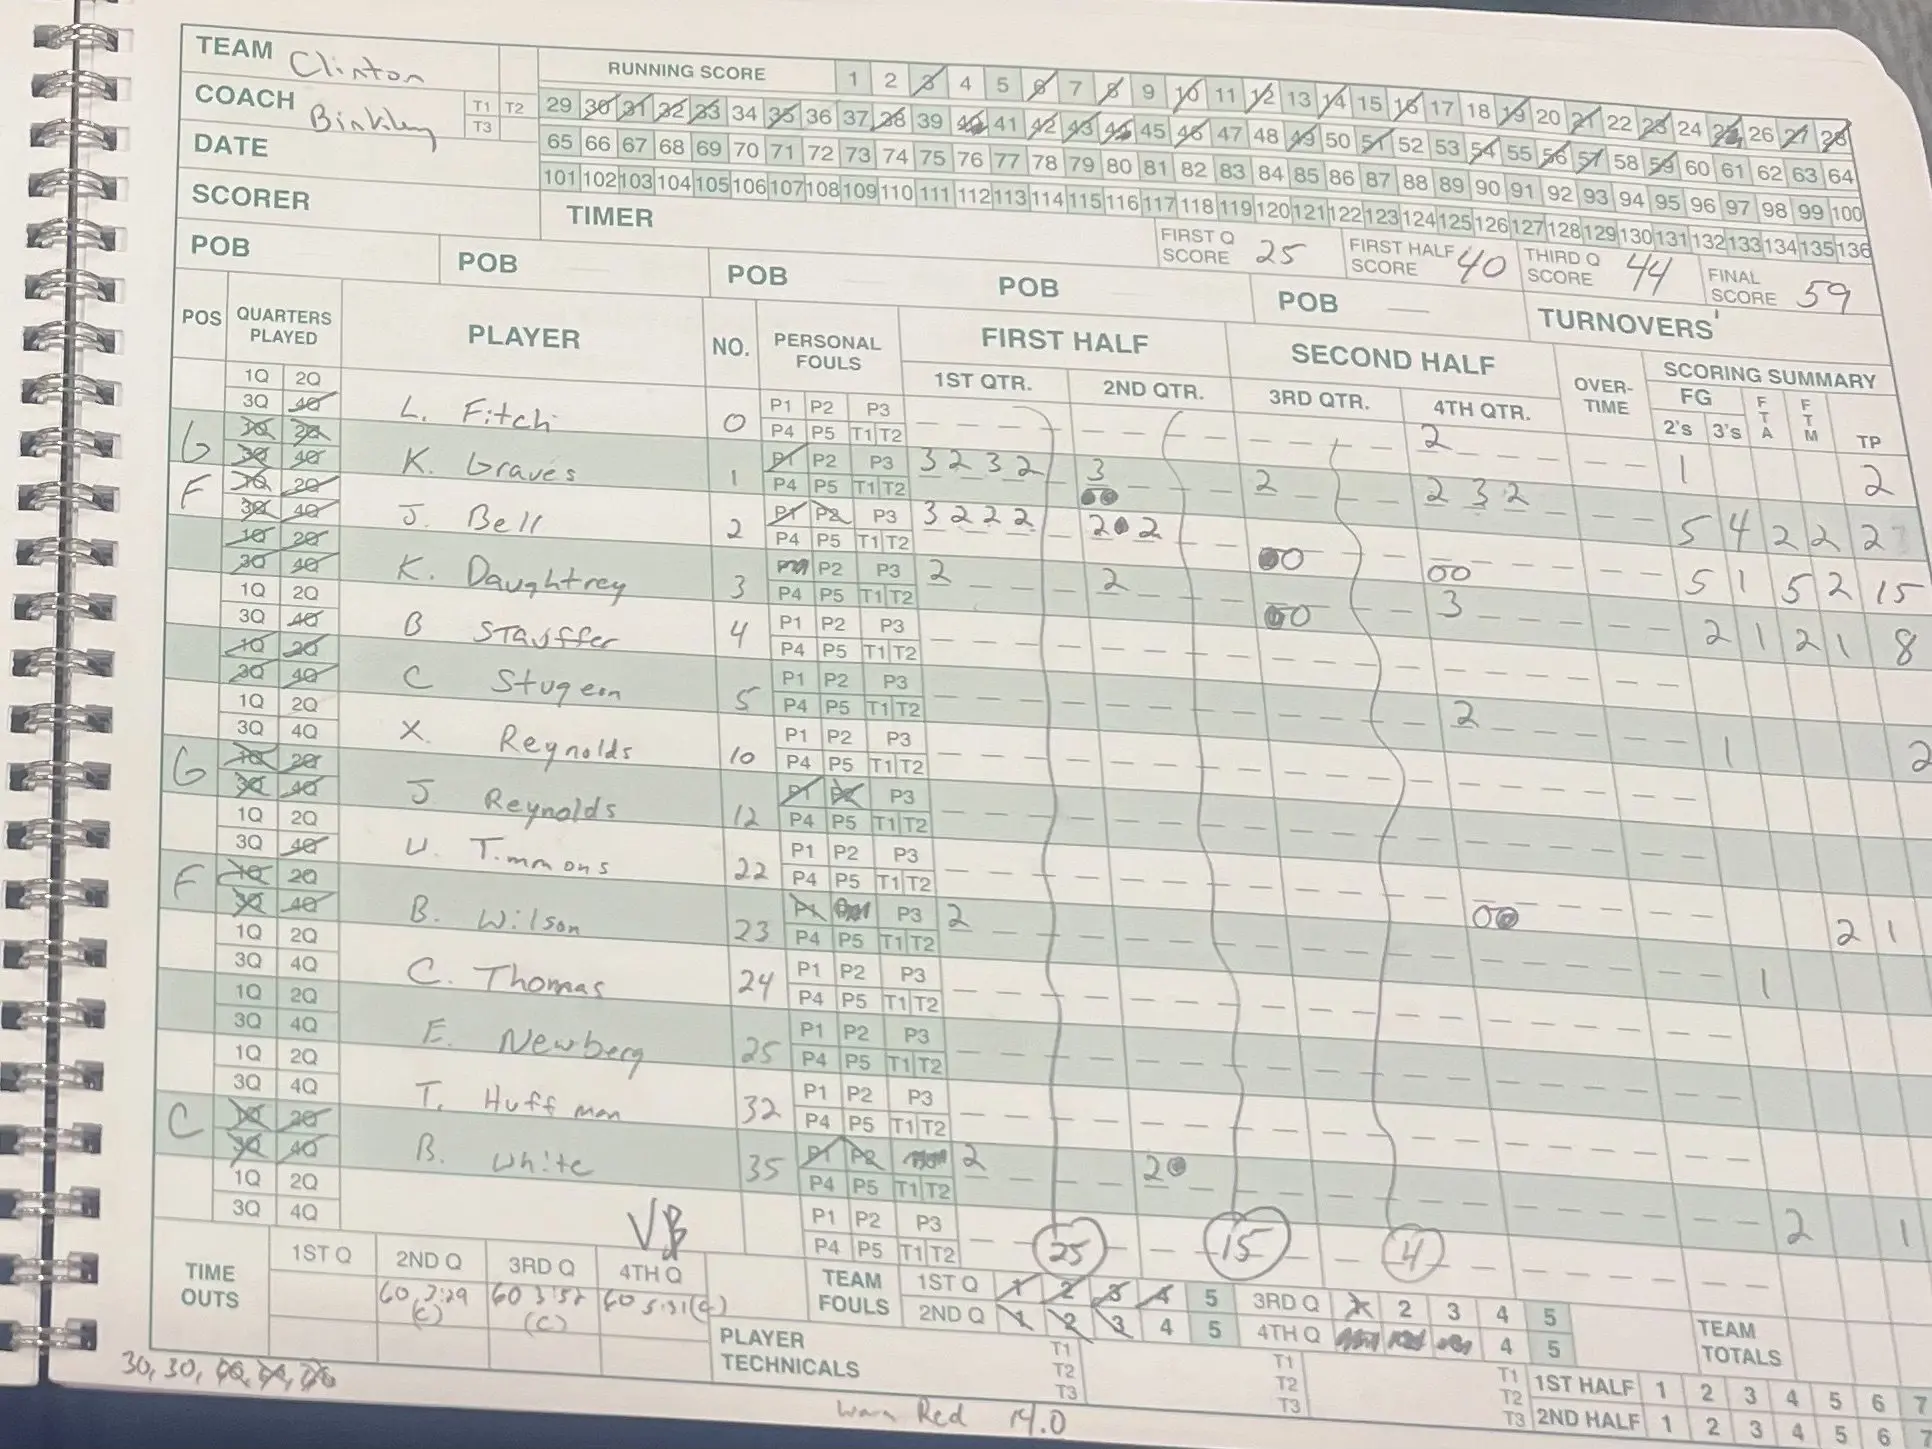 TEAM Clinton
RUNNING SCORE 1 2 3 4 5 6 7 8 9 10 11 12 13 14 15 16 17 18 19 20 21 22 23 24 25 26 27 28
COACH Binkley T1 T2 T3
29 30 31 32 33 34 35 36 37 38 39 40 41 42 43 44 45 46 47 48 49 50 51 52 53 54 55 56 57 58 59 60 61 62 63 64
DATE
65 66 67 68 69 70 71 72 73 74 75 76 77 78 79 80 81 82 83 84 85 86 87 88 89 90 91 92 93 94 95 96 97 98 99 100
101 102 103 104 105 106 107 108 109 110 111 112 113 114 115 116 117 118 119 120 121 122 123 124 125 126 127 128 129 130 131 132 133 134 135 136
SCORER TIMER
FIRST Q SCORE 25 FIRST HALF SCORE 40 THIRD Q SCORE 44 FINAL SCORE 59
POB POB POB POB POB TURNOVERS
POS QUARTERS PLAYED PLAYER NO. PERSONAL FOULS FIRST HALF SECOND HALF OVER-TIME SCORING SUMMARY
1ST QTR. 2ND QTR. 3RD QTR. 4TH QTR. FG 2's 3's FTA FTM TP
1Q 2Q 3Q 4Q L. Fitch 0 P1 P2 P3 P4 P5 T1 T2 2 1 2
G 1Q 2Q 3Q 4Q K. Graves 1 P1 P2 P3 P4 P5 T1 T2 3 2 3 2 3 2 2 3 2 5 4 2 2 2
F 1Q 2Q 3Q 4Q J. Bell 2 P1 P2 P3 P4 P5 T1 T2 3 2 2 2 2 2 5 1 5 2 15
1Q 2Q 3Q 4Q K. Daughtrey 3 P1 P2 P3 P4 P5 T1 T2 2 2 3 2 1 2 1 8
1Q 2Q 3Q 4Q B Stauffer 4 P1 P2 P3 P4 P5 T1 T2
1Q 2Q 3Q 4Q C Stugeon 5 P1 P2 P3 P4 P5 T1 T2 2 1 2
1Q 2Q 3Q 4Q X. Reynolds 10 P1 P2 P3 P4 P5 T1 T2
G 1Q 2Q 3Q 4Q J Reynolds 12 P1 P2 P3 P4 P5 T1 T2
1Q 2Q 3Q 4Q U. Timmons 22 P1 P2 P3 P4 P5 T1 T2 2 1
F 1Q 2Q 3Q 4Q B. Wilson 23 P1 P3 P4 P5 T1 T2 2 1
1Q 2Q 3Q 4Q C. Thomas 24 P1 P2 P3 P4 P5 T1 T2
1Q 2Q 3Q 4Q E. Newberg 25 P1 P2 P3 P4 P5 T1 T2
1Q 2Q 3Q 4Q T. Huffman 32 P1 P2 P3 P4 P5 T1 T2
C 1Q 2Q 3Q 4Q B. White 35 P1 P2 P4 P5 T1 T2 2 2 2 1
1Q 2Q 3Q 4Q P1 P2 P3 P4 P5 T1 T2 25 15 4
TIME OUTS 1ST Q 2ND Q 3RD Q 4TH Q
60 3:29 (C) 60 3:52 (C) 60 5:31 (C)
TEAM FOULS 1ST Q 1 2 3 4 5 3RD Q 1 2 3 4 5
2ND Q 1 2 3 4 5 4TH Q 4 5
TEAM TOTALS
PLAYER TECHNICALS T1 T2 T3 T1 T2 T3 T1 T2 T3
1ST HALF 1 2 3 4 5 6 7
2ND HALF 1 2 3 4 5 6
30, 30,
Red 14.0